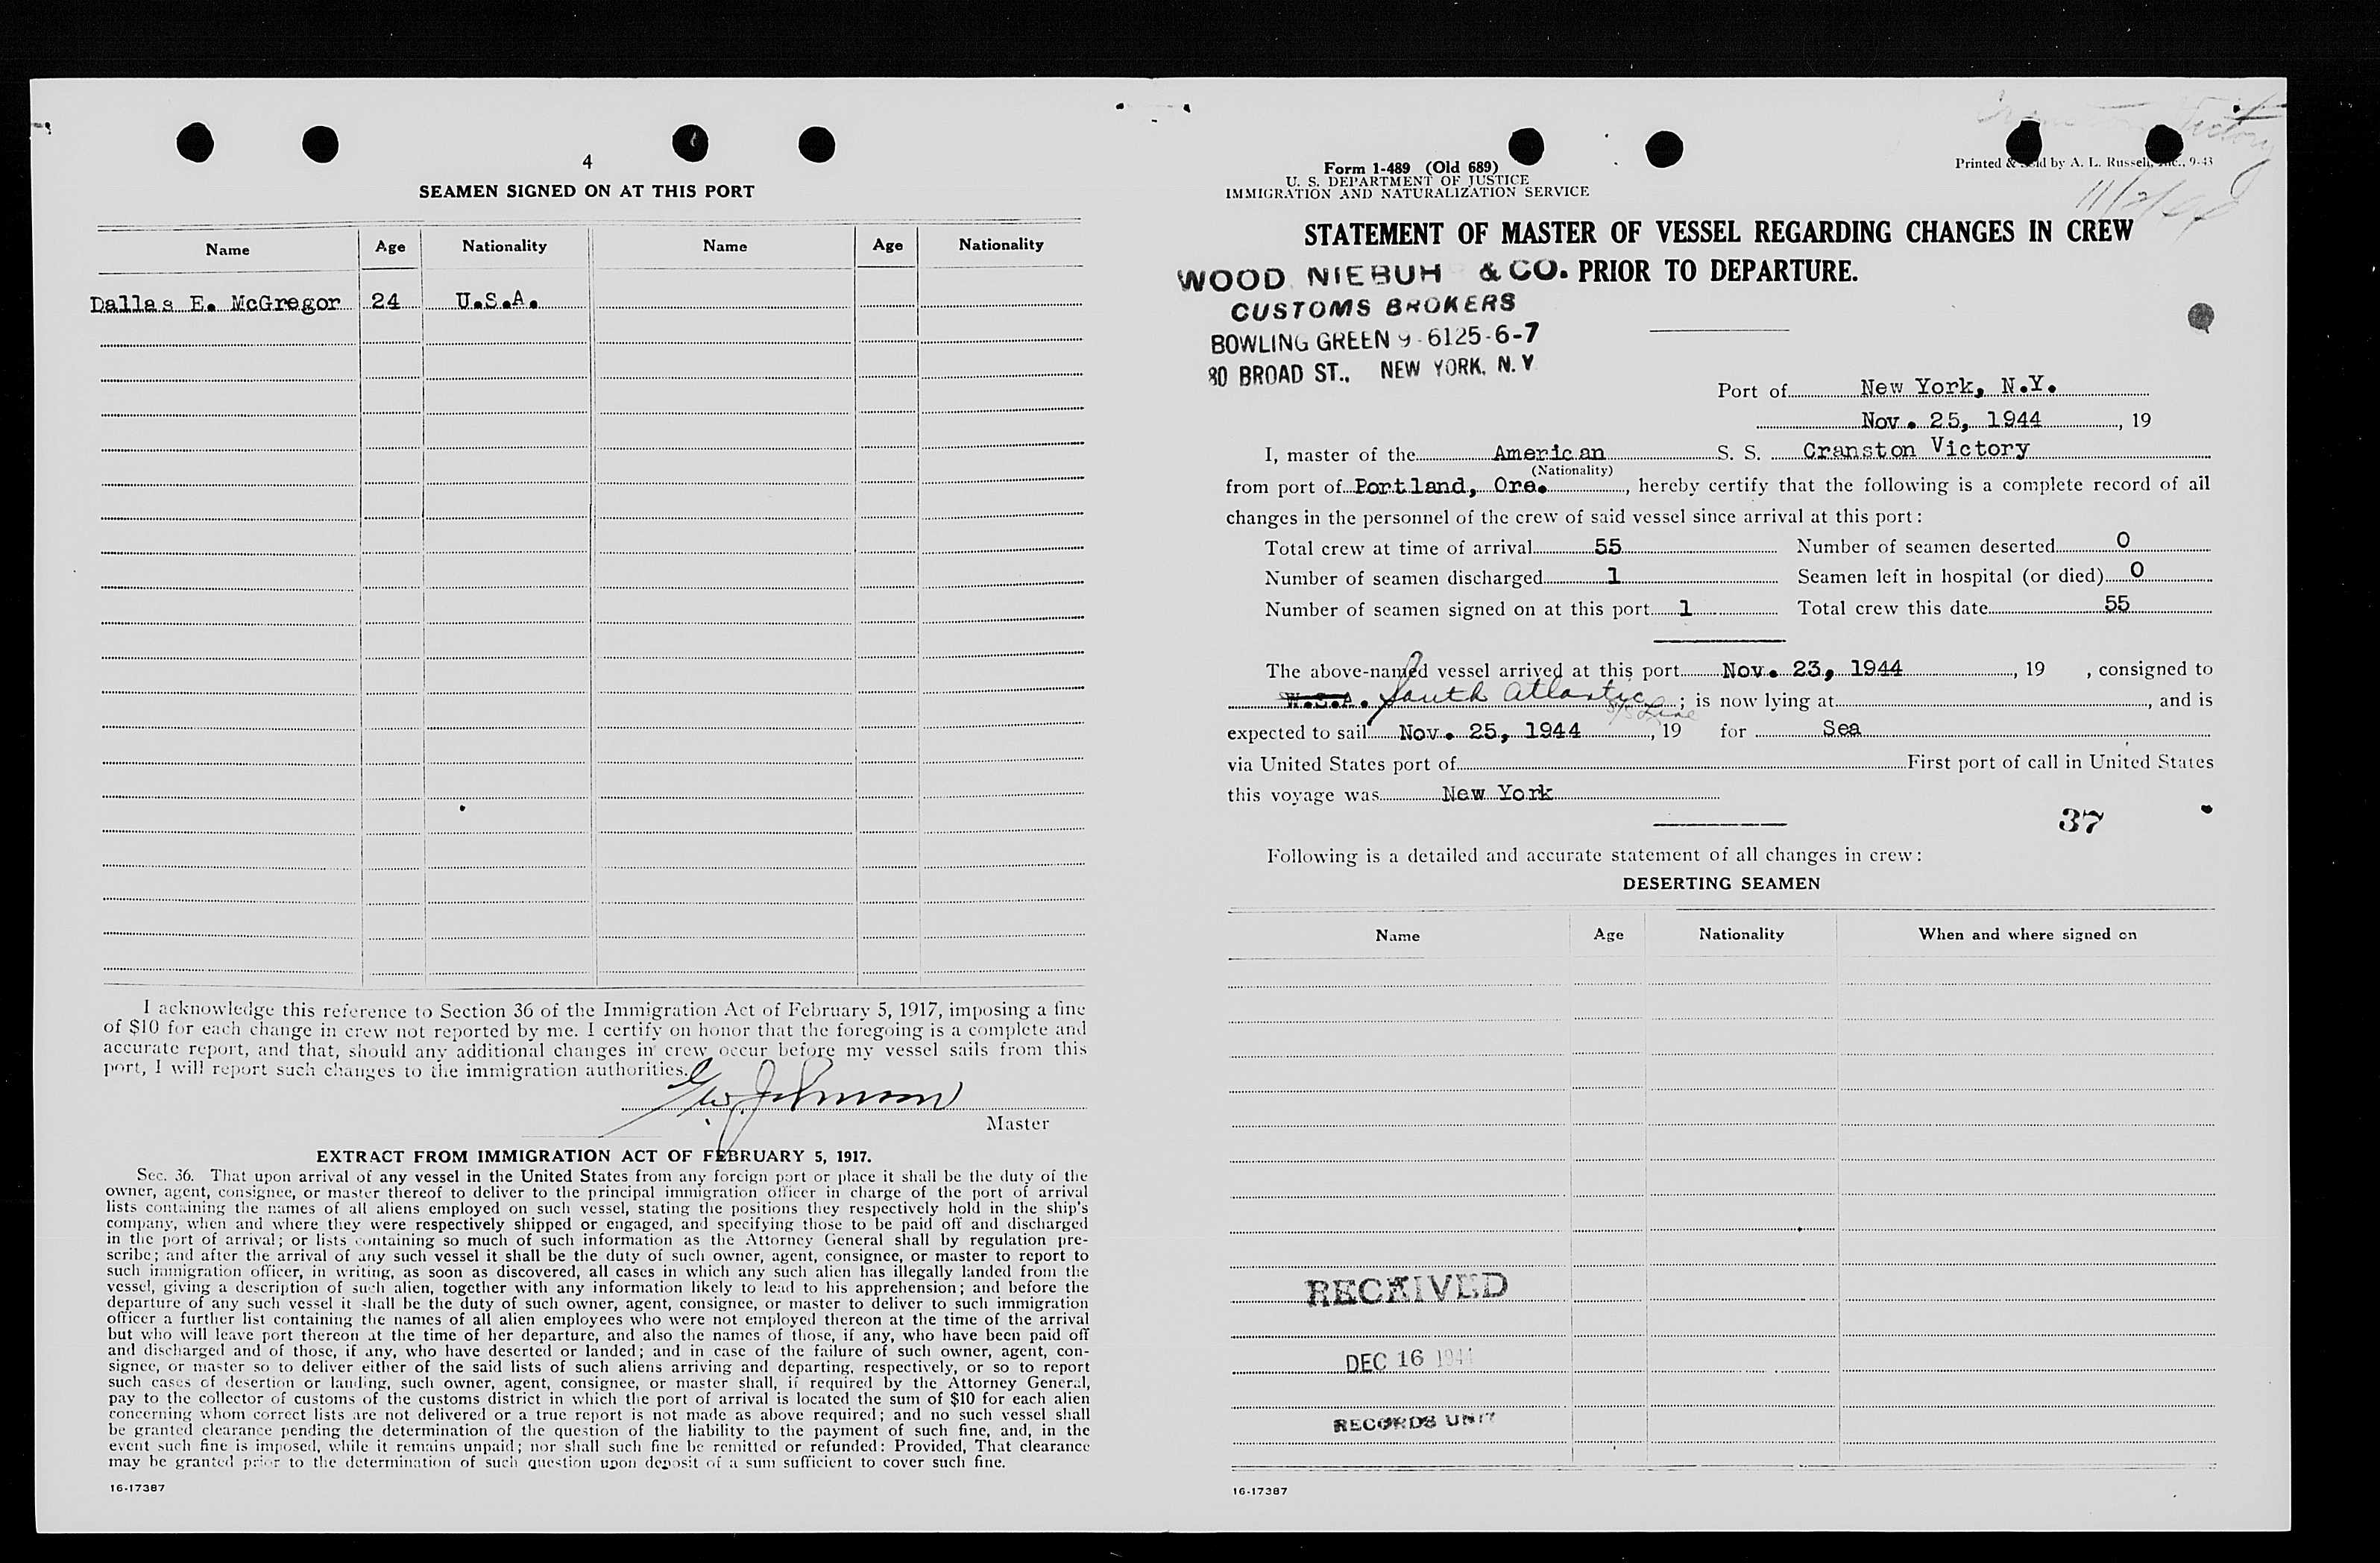 4
SEAMEN SIGNED ON AT THIS PORT
Name Age Nationality Name Age Nationality
Dallas E. McGregor 24 U.S.A.
I acknowledge this reference to Section 36 of the Immigration Act of February 5, 1917, imposing a fine
of $10 for each change in crew not reported by me. I certify on honor that the foregoing is a complete and
accurate report, and that, should any additional changes in crew occur before my vessel sails from this
port, I will report such changes to the immigration authorities.
Geo. Johnson
Master
EXTRACT FROM IMMIGRATION ACT OF FEBRUARY 5, 1917.
Sec. 36. That upon arrival of any vessel in the United States from any foreign port or place it shall be the duty of the
owner, agent, consignee, or master thereof to deliver to the principal immigration officer in charge of the port of arrival
lists containing the names of all aliens employed on such vessel, stating the positions they respectively hold in the ship's
company, when and where they were respectively shipped or engaged, and specifying those to be paid off and discharged
in the port of arrival; or lists containing so much of such information as the Attorney General shall by regulation pre-
scribe; and after the arrival of any such vessel it shall be the duty of such owner, agent, consignee, or master to report to
such immigration officer, in writing, as soon as discovered, all cases in which any such alien has illegally landed from the
vessel, giving a description of such alien, together with any information likely to lead to his apprehension; and before the
departure of any such vessel it shall be the duty of such owner, agent, consignee, or master to deliver to such immigration
officer a further list containing the names of all alien employees who were not employed thereon at the time of the arrival
but who will leave port thereon at the time of her departure, and also the names of those, if any, who have been paid off
and discharged and of those, if any, who have deserted or landed; and in case of the failure of such owner, agent, con-
signee, or master so to deliver either of the said lists of such aliens arriving and departing, respectively, or so to report
such cases of desertion or landing, such owner, agent, consignee, or master shall, if required by the Attorney General,
pay to the collector of customs of the customs district in which the port of arrival is located the sum of $10 for each alien
concerning whom correct lists are not delivered or a true report is not made as above required; and no such vessel shall
be granted clearance pending the determination of the question of the liability to the payment of such fine, and, in the
event such fine is imposed, while it remains unpaid; nor shall such fine be remitted or refunded: Provided, That clearance
may be granted prior to the determination of such question upon deposit of a sum sufficient to cover such fine.
16-17387
Victory
Form 1-489 (Old 689)
U. S. DEPARTMENT OF JUSTICE
IMMIGRATION AND NATURALIZATION SERVICE
Printed & Sold by A. L. Russell, Inc., 9-43
STATEMENT OF MASTER OF VESSEL REGARDING CHANGES IN CREW
PRIOR TO DEPARTURE.
WOOD NIEBUH & CO.
CUSTOMS BROKERS
BOWLING GREEN 9-6125-6-7
80 BROAD ST., NEW YORK, N. Y
Port of New York, N.Y.
Nov. 25, 1944, 19
I, master of the American S. S. Cranston Victory
(Nationality)
from port of Portland, Ore., hereby certify that the following is a complete record of all
changes in the personnel of the crew of said vessel since arrival at this port:
Total crew at time of arrival 55 Number of seamen deserted 0
Number of seamen discharged 1 Seamen left in hospital (or died) 0
Number of seamen signed on at this port 1 Total crew this date 55
The above-named vessel arrived at this port Nov. 23, 1944, 19 , consigned to
W.S.A. South Atlantic S/S Line; is now lying at , and is
expected to sail Nov. 25, 1944, 19 for Sea
via United States port of First port of call in United States
this voyage was New York
37
Following is a detailed and accurate statement of all changes in crew:
DESERTING SEAMEN
Name Age Nationality When and where signed on
RECEIVED
DEC 16 1944
RECORDS UNIT
16-17387